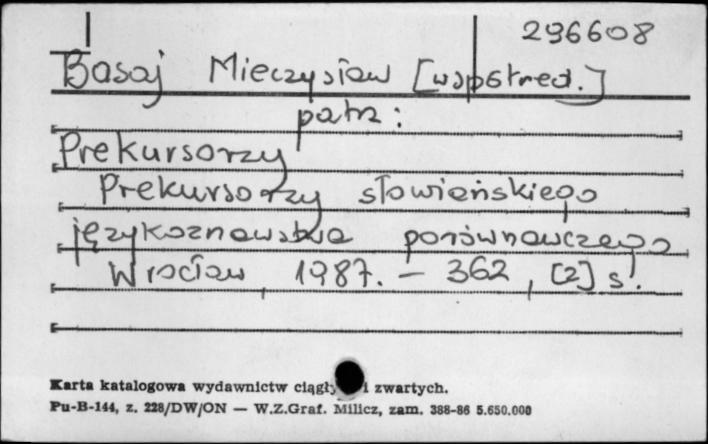 296608
Basaj Mieczysław [współred.]
patrz:
Prekursorzy
Prekursorzy słowiańskiego
językoznawstwa porównawczego
Wrocław, 1987. - 362, [2] s.
Karta katalogowa wydawnictw i zwartych.
Pu-B-144, z. 228/DW/ON — W.Z.Graf. Milicz, zam. 388-86 5.650.000